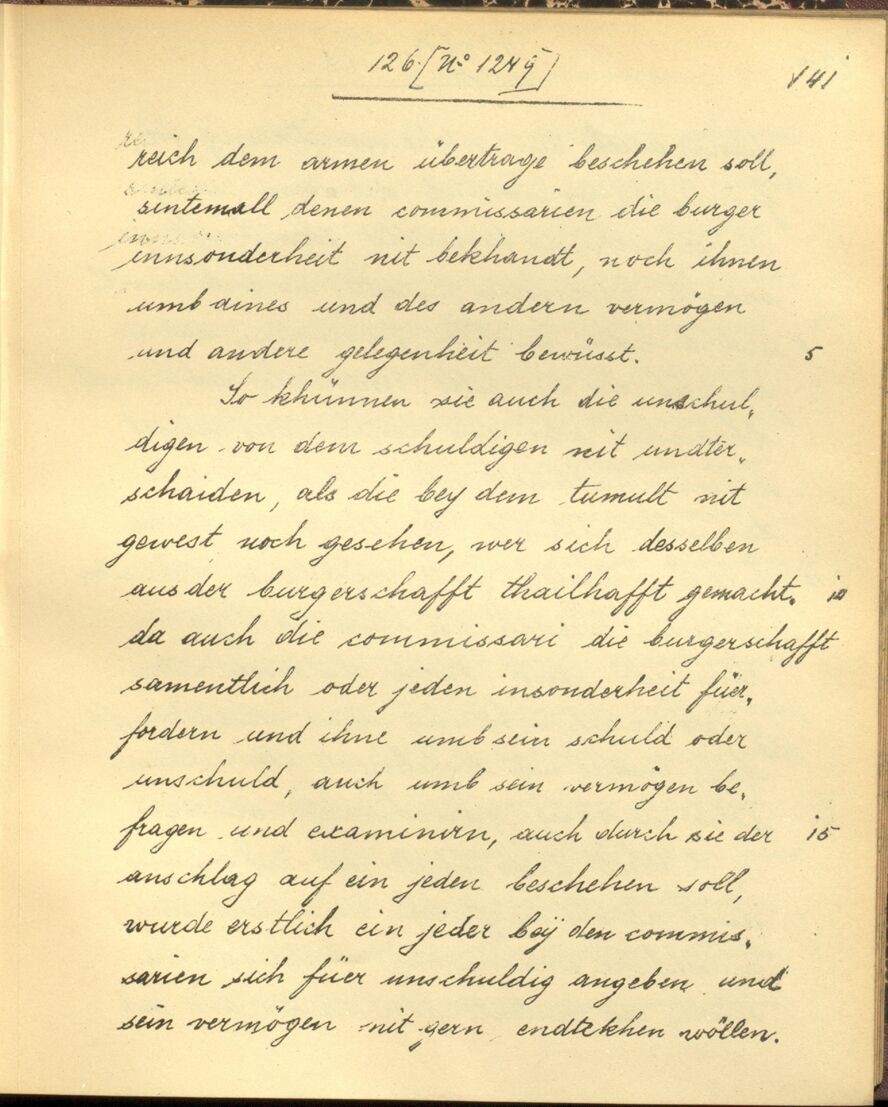 126 [No 1249]
141
reich dem armen übertrage beschehen soll,
sintemall denen commissarien die burger
innsonderheit nit bekhandt, noch ihnen
umb aines und des andern vermögen
und andere gelegenheit bewüsst. 5
So khünnen sie auch die unschul„
digen von dem schuldigen nit undter„
schaiden, als die bey dem tumult nit
gewest noch gesehen, wer sich desselben
aus der burgerschafft thailhafft gemacht. 10
da auch die commissari die burgerschafft
samentlich oder jeden insonderheit füer„
fordern und ihne umb sein schuld oder
unschuld, auch umb sein vermögen be„
fragen und examinirn, auch durch sie der 15
anschlag auf ein jeden beschehen soll,
wurde erstlich ein jeder beÿ den commis„
sarien sich füer unschuldig angeben und
sein vermögen nit gern endtekhen wöllen.